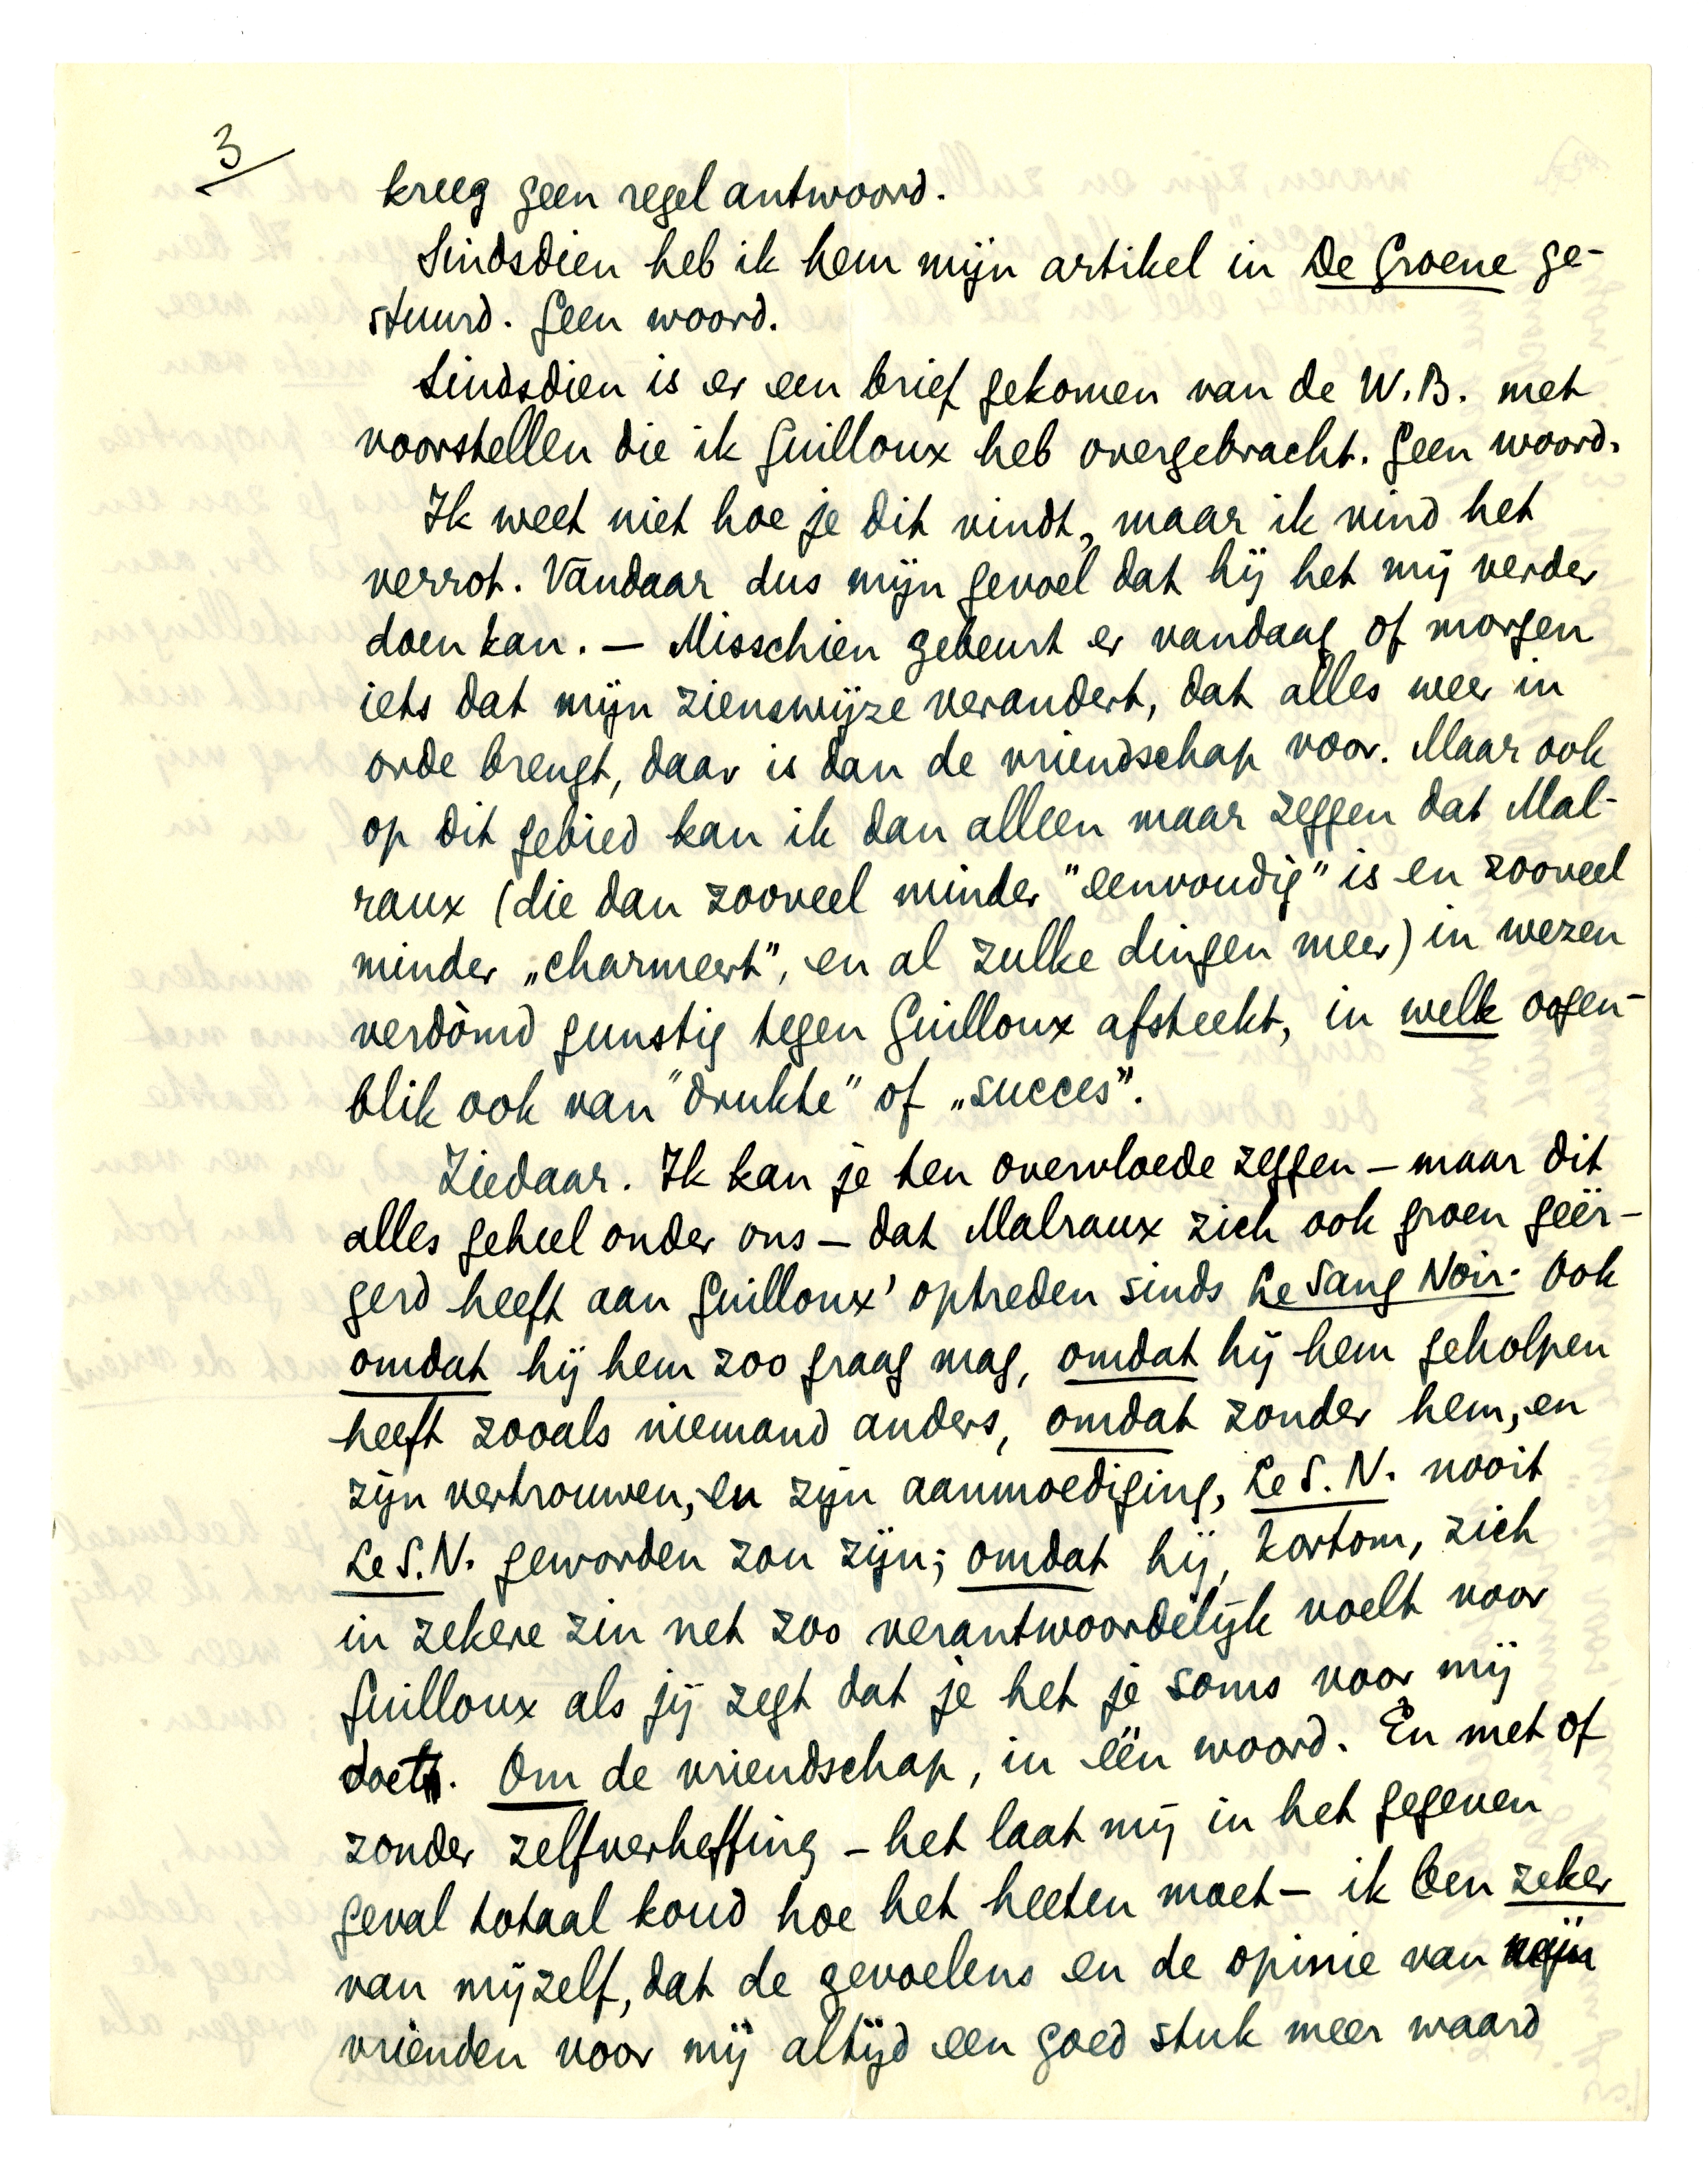 3
kreeg geen regel antwoord.
Sindsdien heb ik hem mijn artikel in De Groene ge-
stuurd. Geen woord.
Sindsdien is er een brief gekomen van de W.B. met
voorstellen die ik Guilloux heb overgebracht. Geen woord.
Ik weet niet hoe je dit vindt, maar ik vind het
verrot. Vandaar dus mijn gevoel dat hij het mij verder
doen kan. — Misschien gebeurt er vandaag of morgen
iets dat mijn zienswijze verandert, dat alles weer in
orde brengt, daar is dan de vriendschap voor. Maar ook
op dit gebied kan ik dan alleen maar zeggen dat Mal-
raux (die dan zooveel minder "eenvoudig" is en zooveel
minder „charmeert", en al zulke dingen meer) in wezen
verdòmd gunstig tegen Guilloux afsteekt, in welk oogen-
blik ook van "drukte" of „succes".
Ziedaar. Ik kan je ten overvloede zeggen — maar dit
alles geheel onder ons — dat Malraux zich ook groen geër-
gerd heeft aan Guilloux' optreden sinds Le Sang Noir. Ook
omdat hij hem zoo graag mag, omdat hij hem geholpen
heeft zooals niemand anders, omdat zonder hem, en
zijn vertrouwen, en zijn aanmoediging, Le S.N. nooit
Le S.N. geworden zou zijn; omdat hij, kortom, zich
in zekere zin net zoo verantwoordelijk voelt voor
Guilloux als jij zegt dat je het je soms voor mij
doet. Om de vriendschap, in één woord. En met of
zonder zelfverheffing — het laat mij in het gegeven
geval totaal koud hoe het heeten moet — ik ben zeker
van mijzelf, dat de gevoelens en de opinie van mijn
vrienden voor mij altijd een goed stuk meer waard